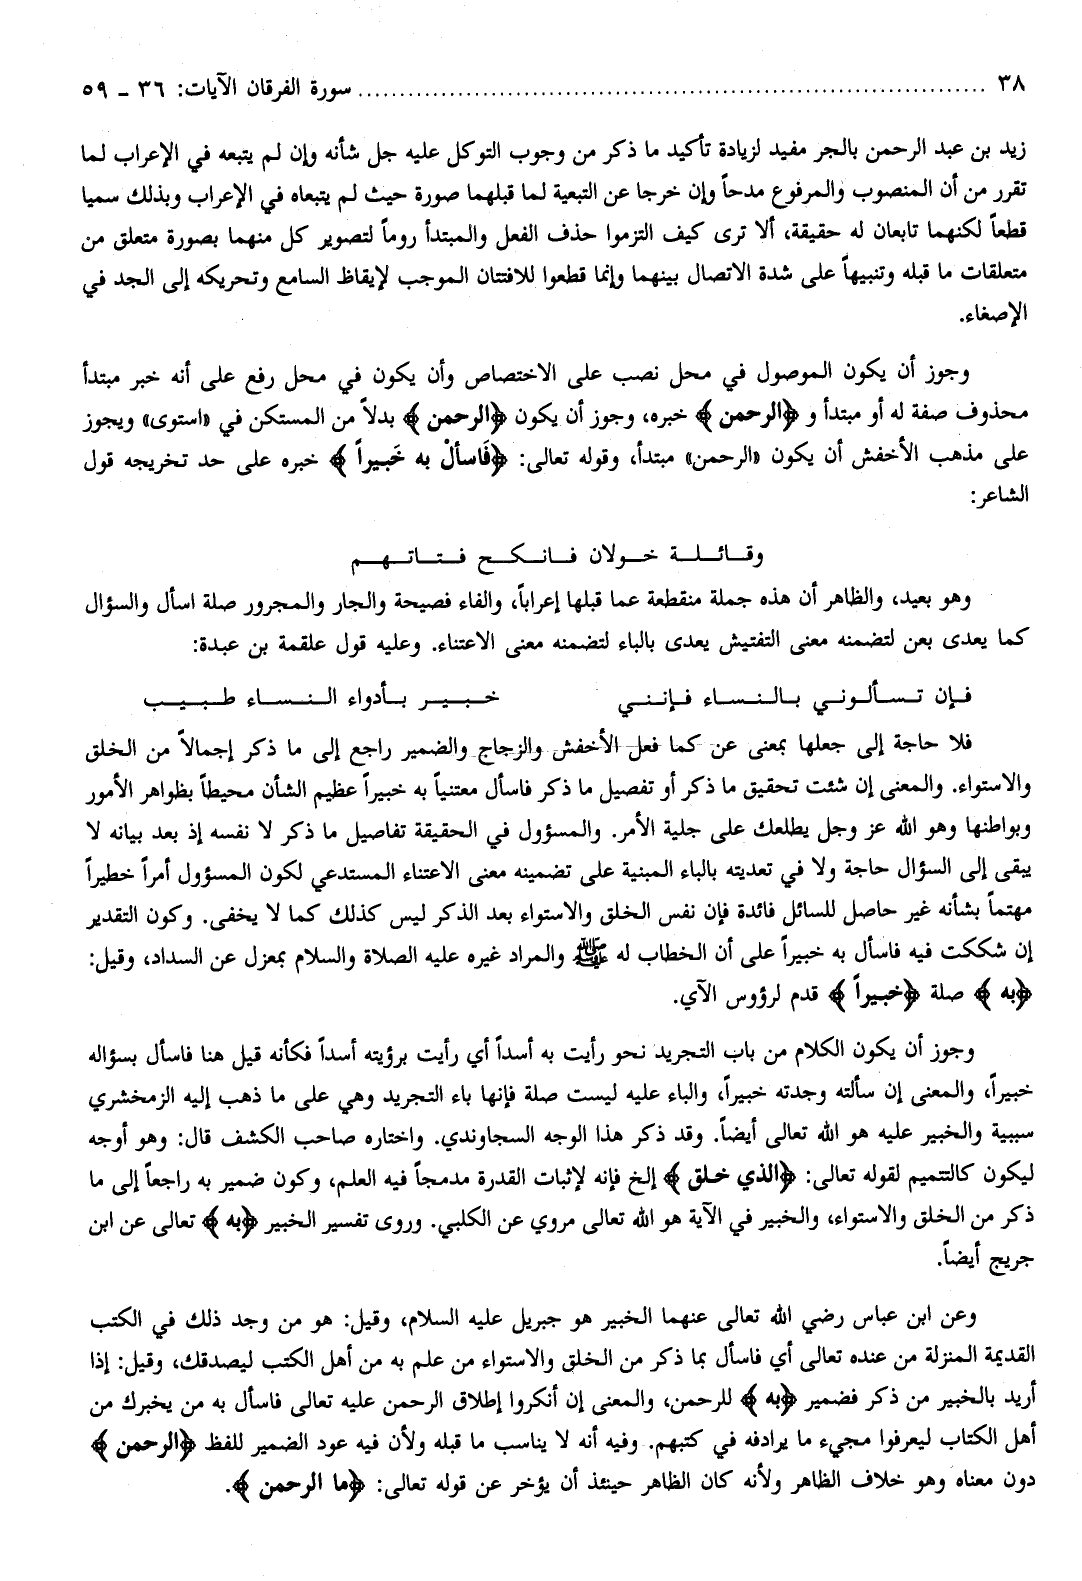 ٣٨ ........................................................................ سورة الفرقان الآيات: ٣٦ ـ ٥٩
زيد بن عبد الرحمن بالجر مفيد لزيادة تأكيد ما ذكر من وجوب التوكل عليه جل شأنه وإن لم يتبعه في الإعراب لما
تقرر من أن المنصوب والمرفوع مدحاً وإن خرجا عن التبعية لما قبلهما صورة حيث لم يتبعاه في الإعراب وبذلك سميا
قطعاً لكنهما تابعان له حقيقة، ألا ترى كيف التزموا حذف الفعل والمبتدأ روماً لتصوير كل منهما بصورة متعلق من
متعلقات ما قبله وتنبيهاً على شدة الاتصال بينهما وإنما قطعوا للافتنان الموجب لإيقاظ السامع وتحريكه إلى الجد في
الإصغاء.
وجوز أن يكون الموصول في محل نصب على الاختصاص وأن يكون في محل رفع على أنه خبر مبتدأ
محذوف صفة له أو مبتدأ و ﴿الرحمن﴾ خبره، وجوز أن يكون ﴿الرحمن﴾ بدلاً من المستكن في «استوى» ويجوز
على مذهب الأخفش أن يكون «الرحمن» مبتدأ، وقوله تعالى: ﴿فَاسألْ به خَبيراً﴾ خبره على حد تخريجه قول
الشاعر:
وقـائـلـة خـولان فـانـكـح فـتـاتـهـم
وهو بعيد، والظاهر أن هذه جملة منقطعة عما قبلها إعراباً، والفاء فصيحة والجار والمجرور صلة اسأل والسؤال
كما يعدى بعن لتضمنه معنى التفتيش يعدى بالباء لتضمنه معنى الاعتناء. وعليه قول علقمة بن عبدة:
فـإن تـسـألـونـي بـالـنـسـاء فـإنـنـي خـبـيـر بـأدواء الـنـسـاء طـبـيـب
فلا حاجة إلى جعلها بمعنى عن كما فعل الأخفش والزجاج والضمير راجع إلى ما ذكر إجمالاً من الخلق
والاستواء. والمعنى إن شئت تحقيق ما ذكر أو تفصيل ما ذكر فاسأل معتنياً به خبيراً عظيم الشأن محيطاً بظواهر الأمور
وبواطنها وهو الله عز وجل يطلعك على جلية الأمر. والمسؤول في الحقيقة تفاصيل ما ذكر لا نفسه إذ بعد بيانه لا
يبقى إلى السؤال حاجة ولا في تعديته بالباء المبنية على تضمينه معنى الاعتناء المستدعي لكون المسؤول أمراً خطيراً
مهتماً بشأنه غير حاصل للسائل فائدة فإن نفس الخلق والاستواء بعد الذكر ليس كذلك كما لا يخفى. وكون التقدير
إن شككت فيه فاسأل به خبيراً على أن الخطاب له ﷺ والمراد غيره عليه الصلاة والسلام بمعزل عن السداد، وقيل:
﴿به﴾ صلة ﴿خبيراً﴾ قدم لرؤوس الآي.
وجوز أن يكون الكلام من باب التجريد نحو رأيت به أسداً أي رأيت برؤيته أسداً فكأنه قيل هنا فاسأل بسؤاله
خبيراً، والمعنى إن سألته وجدته خبيراً، والباء عليه ليست صلة فإنها باء التجريد وهي على ما ذهب إليه الزمخشري
سببية والخبير عليه هو الله تعالى أيضاً. وقد ذكر هذا الوجه السجاوندي. واختاره صاحب الكشف قال: وهو أوجه
ليكون كالتتميم لقوله تعالى: ﴿الذي خلق﴾ إلخ فإنه لإثبات القدرة مدمجاً فيه العلم، وكون ضمير به راجعاً إلى ما
ذكر من الخلق والاستواء، والخبير في الآية هو الله تعالى مروي عن الكلبي. وروى تفسير الخبير ﴿به﴾ تعالى عن ابن
جريج أيضاً.
وعن ابن عباس رضي الله تعالى عنهما الخبير هو جبريل عليه السلام، وقيل: هو من وجد ذلك في الكتب
القديمة المنزلة من عنده تعالى أي فاسأل بما ذكر من الخلق والاستواء من علم به من أهل الكتب ليصدقك، وقيل: إذا
أريد بالخبير من ذكر فضمير ﴿به﴾ للرحمن، والمعنى إن أنكروا إطلاق الرحمن عليه تعالى فاسأل به من يخبرك من
أهل الكتاب ليعرفوا مجيء ما يرادفه في كتبهم. وفيه أنه لا يناسب ما قبله ولأن فيه عود الضمير للفظ ﴿الرحمن﴾
دون معناه وهو خلاف الظاهر ولأنه كان الظاهر حينئذ أن يؤخر عن قوله تعالى: ﴿ما الرحمن﴾.